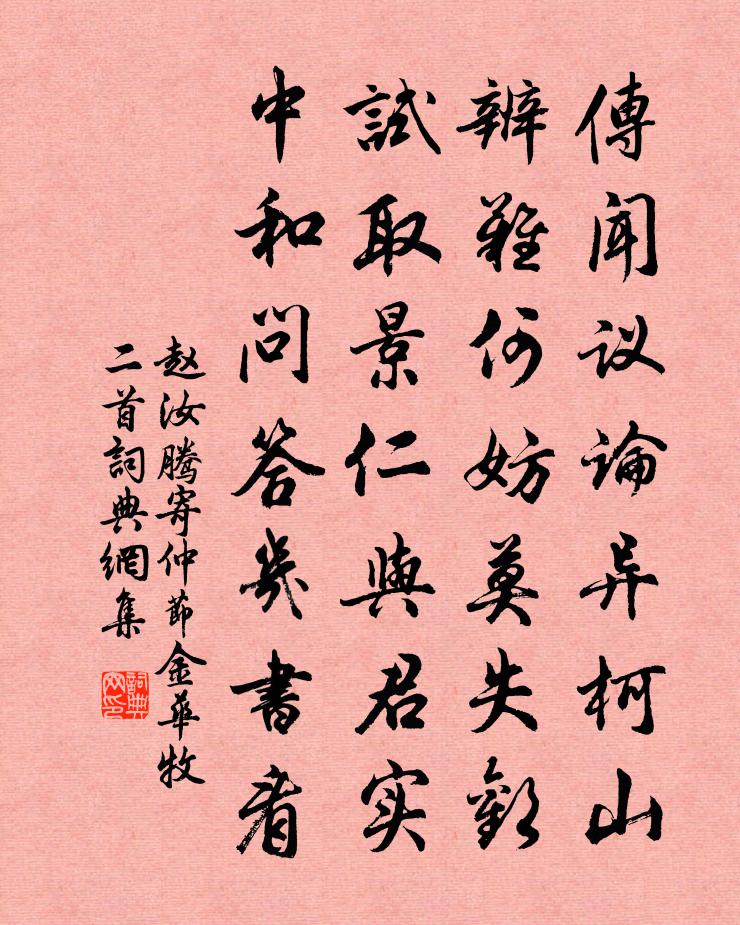 傳聞议論异柯山
辨難何妨莫失歡
試取景仁與君实
中和问答幾書看
赵汝騰寄仲節金華牧
二首詞典網集
詞典网印